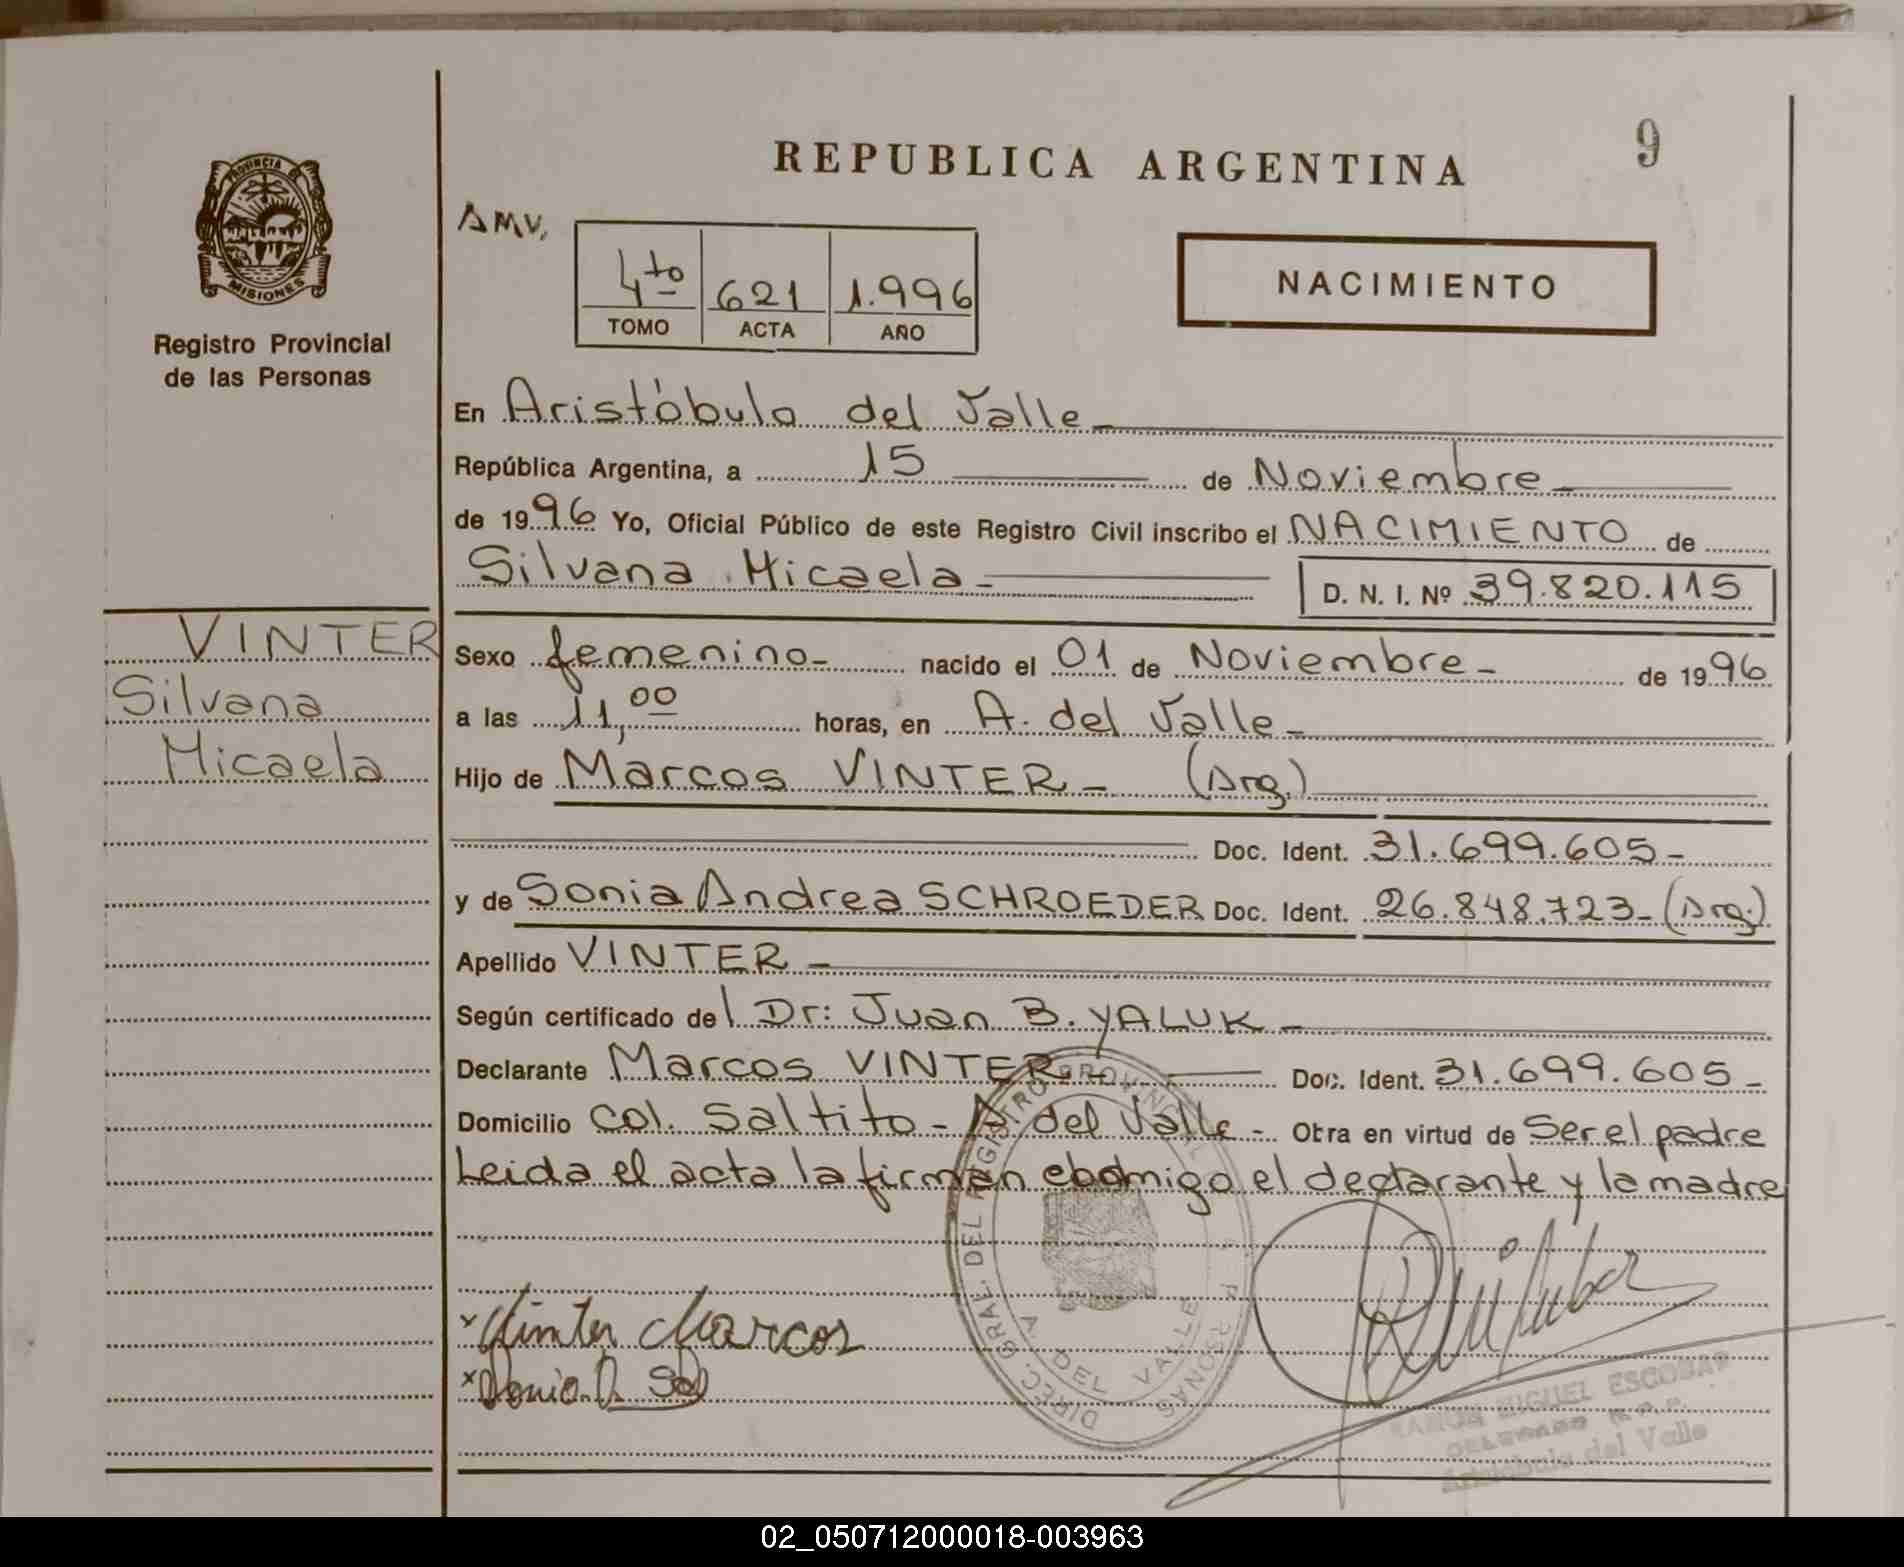 REPUBLICA ARGENTINA
9
PROVINCIA
MISIONES
Registro Provincial
de las Personas
AMV.
4to 621 1.996
TOMO ACTA AÑO
NACIMIENTO
En Aristóbulo del Valle
República Argentina, a 15 de Noviembre
de 1996 Yo, Oficial Público de este Registro Civil inscribo el NACIMIENTO de
Silvana Micaela D. N. I. Nº 39.820.115
VINTER
Silvana
Micaela
Sexo femenino nacido el 01 de Noviembre de 1996
a las 11,00 horas, en A. del Valle
Hijo de Marcos VINTER (Arg.)
Doc. Ident. 31.699.605
y de Sonia Andrea SCHROEDER Doc. Ident. 26.848.723 (Arg.)
Apellido VINTER
Según certificado del Dr: Juan B. YALUK
Declarante Marcos VINTER Doc. Ident. 31.699.605
Domicilio Col. Saltito - A del Valle - Obra en virtud de Ser el padre
Leida el acta la firman conmigo el declarante y la madre
DIREC. GRAL. DEL REGISTRO PROVINCIAL
A. DEL VALLE
x Vinter Marcos
x Sonia A. Sch
MIGUEL ESCOBAR
Aristóbulo del Valle
02_050712000018-003963